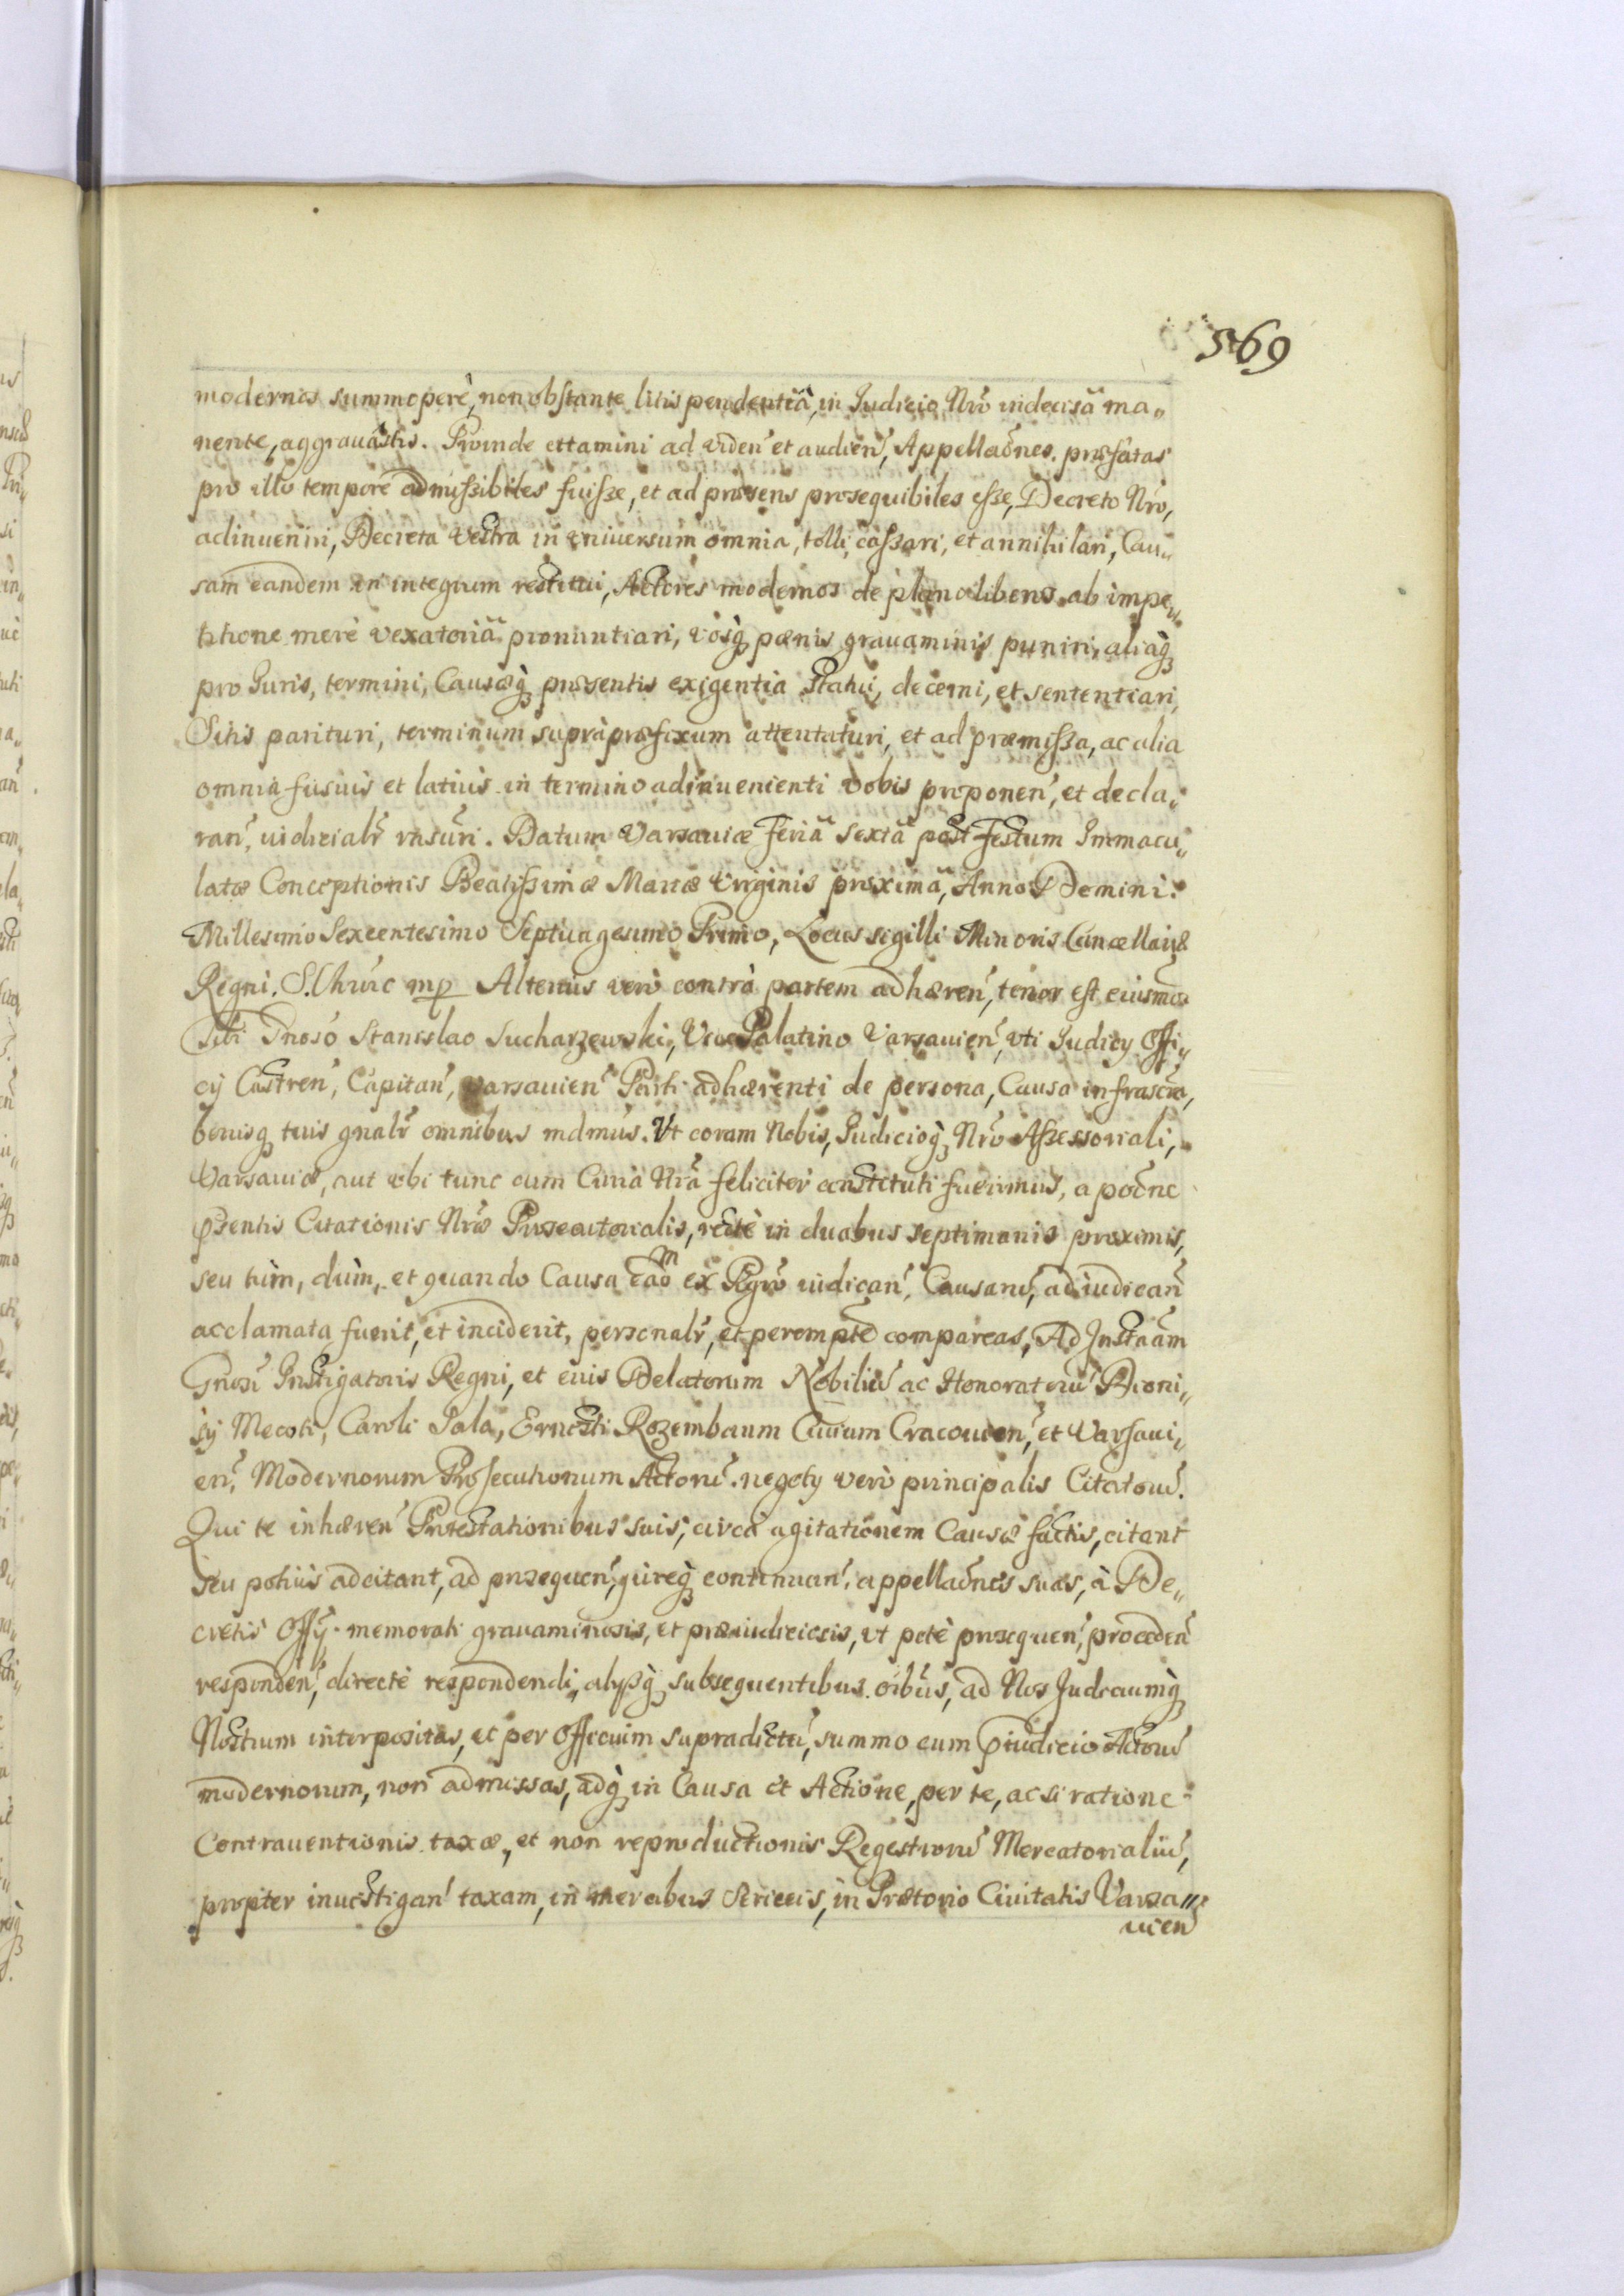 569
modernos summoperè, non obstante litis pendentiâ, in Iudicio Nrõ indecisâ ma„
nente, aggravastis. Proinde citamini ad viden̄ et audien̄, Appellaõnes præfatas
pro illo tempore admissibiles fuisse, et ad præsens prosequibiles esse, Decreto Nrõ,
adinveniri, Decreta Vestra in universum omnia, tolli, cassari, et annihilari, Cau„
sam eandem in integrum restitui, Actores modernos de plano liberos ab impe„
titione merè vexatoriâ pronuntiari, vosq́ pœnis gravaminis puniri, aliaq́
pro Iuris, termini, Causæq́ præsentis exigentia statui, decerni, et sententiari,
Sitis parituri, terminum supra præfixum attentaturi, et ad præmissa, ac alia
omnia fusius et latius in termino adinvenienti vobis proponen̄, et decla„
ran̄, iudicialr̃ rñsuri. Datum Varsaviæ Feriâ Sextâ post Festum Immacu„
latæ Conceptionis Beatissimæ Mariæ Virginis proximâ, Anno Domini
Millesimo Sexcentesimo Septuagesimo Primo, Locus sigilli Minoris Cancellariæ
Regni. mp Alterius verò contrà partem adhæren̄, tenor est eiusmõi
Tibi Gnoso Stanislao Sucharzewski, Vice Palatino Varsavien̄, uti Iudicy Offi„
cij Castren̄, Capitan̄, Varsavien̄ Parti adhærenti de persona, Causa infrascrã,
bonisq́ tuis gnalr̃ omnibus mdmũs. Vt coram Nobis, Iudicioq́ Nrõ Assessoriali,
Varsaviæ, aut ubi tunc cum Curiâ Nrã feliciter constituti fuerimus, a poõne
p̃sentis Citationis Nræ Prosecutorialis, rectè in duabus septimanis proximis,
seu tùm, dùm, et quando Causa eaõm ex Rgrõ iudican̄, Causarũ, adiudican̄
acclamata fuerit, et inciderit, personalr̃, et peremptẽ compareas, Ad Instaãm
Gnosi Instigatoris Regni, et eius Delatorum Nobiliũ ac Honoratorũ Dioni„
sij Mecoti, Caroli Sala, Ernesti Rozembaum Civium Cracovien̄, et Varsavi„
en̄, Modernorum Prosecutionum Actorũ. negoty verò principalis Citatorũ.
Qui te inhæren̄ Protestationibus suis, circa agitationem Causæ factis, citant
seu potiùs adcitant, ad prosequen̄, iureq́ continuan̄, appellaõnes suas, à De„
cretis Offy memorati gravaminosis, et præiudiciosis, vt potè prosequen̄, proceden̄
responden̄, directè respondendi, alysq́ subsequentibus oĩbus, ad Nos Iudiciumq́
Nostrum interpositas, et per Officium supradictũ, summo cum p̃iudicio Actorũ
modernorum, non admissas, adq́ in Causa et Actione, per te, ac si ratione
Contraventionis taxæ, et non reproductionis Regestrorũ Mercatorialiũ,
propter investigan̄ taxam, in mercibus Sericeis, in Prætorio Civitatis Varsa„
vien̄